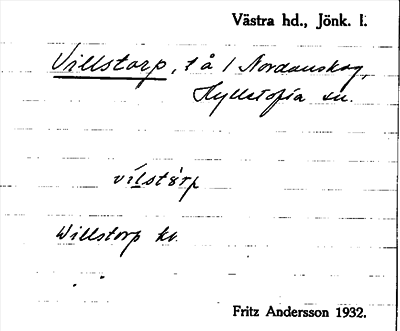 Västra hd., Jönk. l.
Villstorp, t å / Nordanskog,
Hyllstofta sn.
vilstörp
Willstorp kv.
Fritz Andersson 1932.